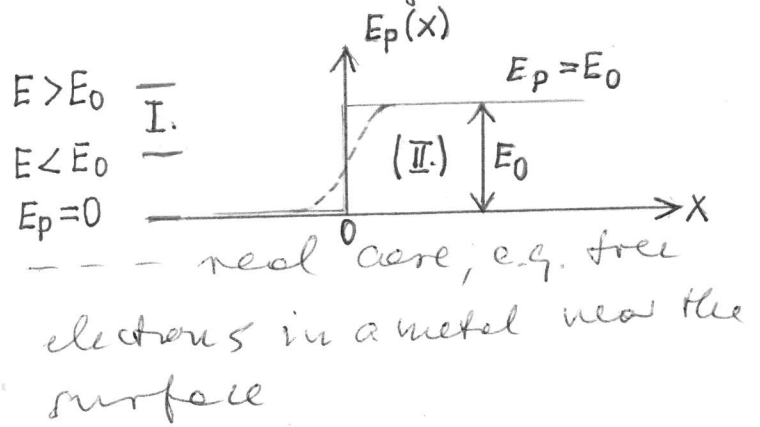 Ep(x)
E>E0
I.
Ep=E0
E<E0
(II.)
E0
Ep=0
0
x
---- real case, e.g. free
electrons in a metal near the
surface